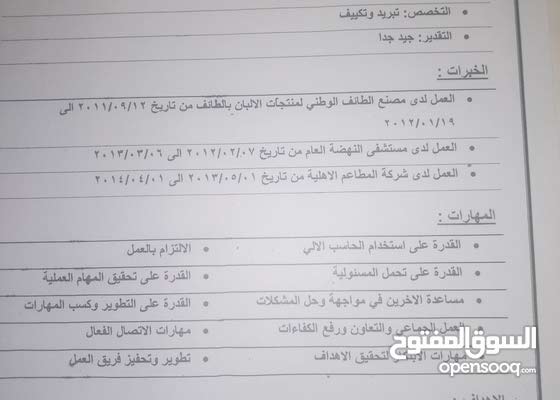 التخصص: تبريد وتكييف
التقدير: جيد جدا
الخبرات :
العمل لدى مصنع الطائف الوطني لمنتجات الالبان بالطائف من تاريخ ٢٠١١/٠٩/١٢ الى
٢٠١٢/٠١/١٩
العمل لدى مستشفى النهضة العام من تاريخ ٢٠١٢/٠٢/٠٧ الى ٢٠١٣/٠٣/٠٦
العمل لدى شركة المطاعم الاهلية من تاريخ ٢٠١٣/٠٥/٠١ الى ٢٠١٤/٠٤/٠١
المهارات :
القدرة على استخدام الحاسب الالي
الالتزام بالعمل
القدرة على تحمل المسئولية
القدرة على تحقيق المهام العملية
مساعدة الاخرين في مواجهة وحل المشكلات
القدرة على التطوير وكسب المهارات
العمل الجماعي والتعاون ورفع الكفاءات
مهارات الاتصال الفعال
مهارات لتحقيق الاهداف
تطوير وتحفيز فريق العمل
السوق المفتوح
opensooq.com